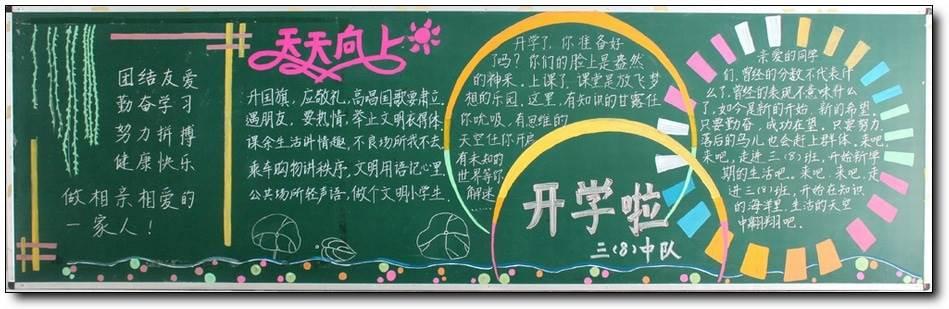 团结友爱
勤奋学习
努力拼搏
健康快乐
做相亲相爱的
一家人！
天天向上
升国旗，应敬礼，高唱国歌要肃立。
遇朋友，要热情，举止文明衣得体。
课余生活讲情趣，不良场所我不去。
乘车购物讲秩序，文明用语记心里。
公共场所轻声语，做个文明小学生。
开学了，你准备好
了吗？你们的脸上是盎然
的神采，上课了，课堂是放飞梦
想的乐园，这里，有知识的甘露任
你吮吸，有思维的
天空任你开启
有未知的
世界等你
解迷……
开学啦
三(8)中队
亲爱的同学
们，曾经的分数不代表什
么了，曾经的表现不意味什么
了，如今是新的开始，新的希望。
只要勤奋，成功在望。只要努力，
落后的鸟儿也会赶上群体。来吧，
来吧，走进三(8)班，开始新学
期的生活吧。来吧，来吧，走
进三(8)班，开始在知识
的海洋里，生活的天空
中翱翔吧。